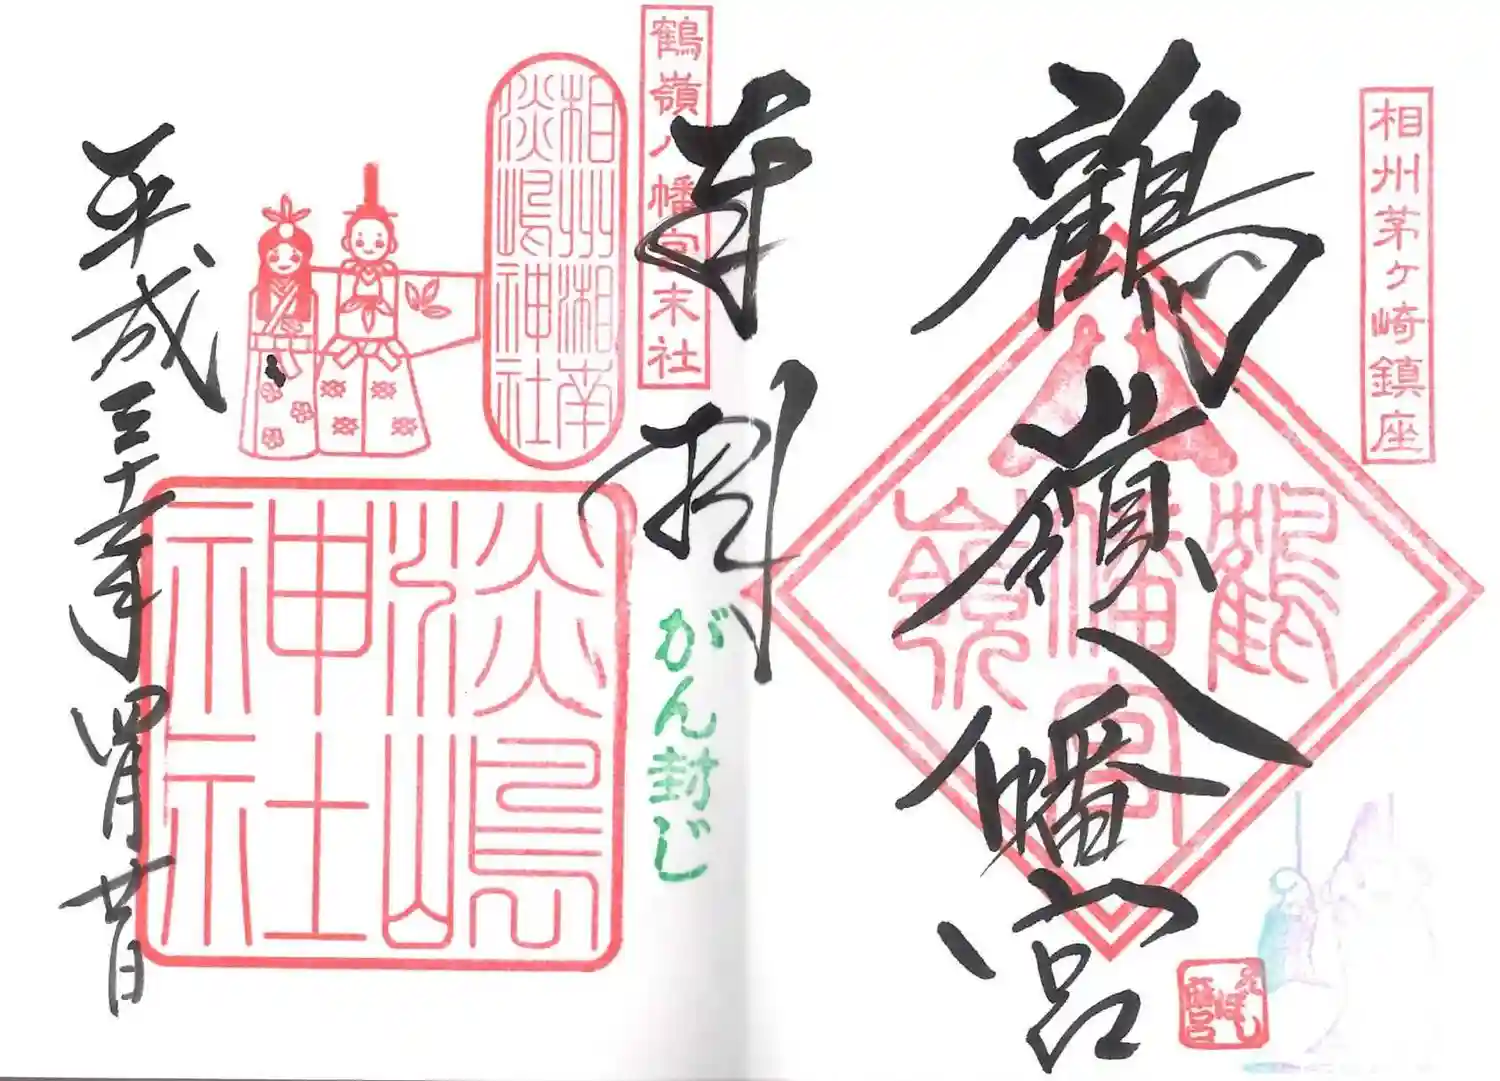 相州茅ヶ崎鎮座
鶴嶺八幡宮
鶴嶺八幡宮
鶴嶺八幡宮末社
奉拝
がん封じ
相州湘南
淡嶋神社
淡嶋
神社
平成三十一年四月廿日